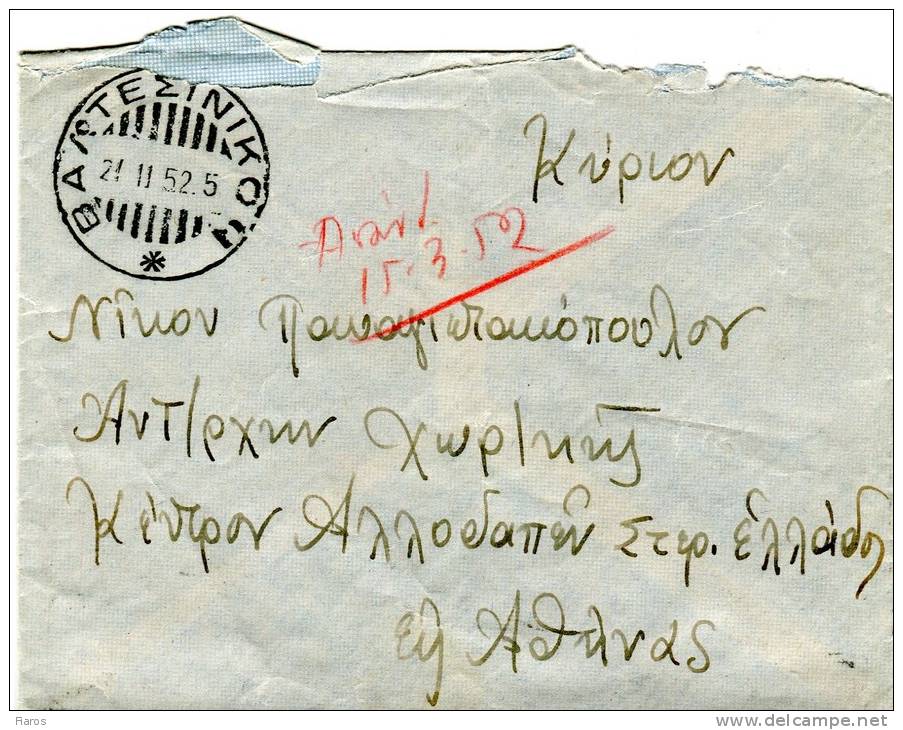 ΒΑΛΤΕΣΙΝΙΚΟΥ
21 II 52.5
Κύριον
Απάντ/
15.3.52
Νῖκον Παναγιωτακόπουλον
Ἀντ/ρχην Χωρ/κῆς
Κέντρον Ἀλλοδαπῶν Στερ. Ἑλλάδος
Εἰς Ἀθήνας
Raros
www.delcampe.net